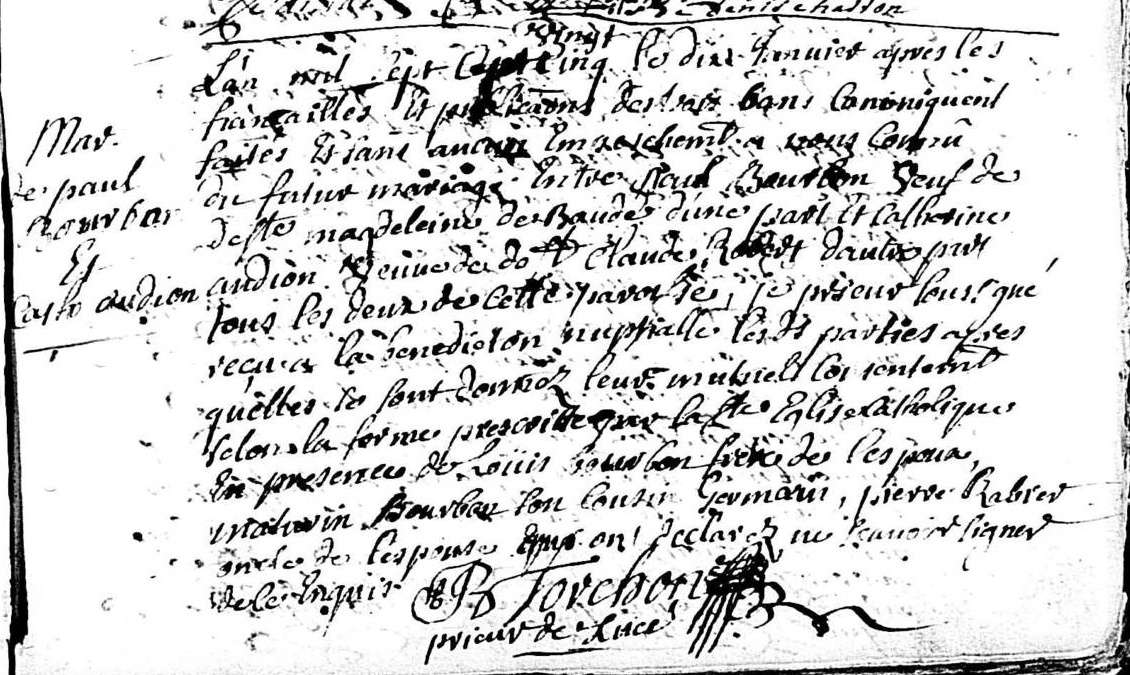 denis chaston
Mar.
de paul
Bourbon
Et
Cath andion
vingt
L'an mil sept cent cinq le dix Janvier apres les
fiançailles et publicaons des trois bans canoniquent
faites et sans aucun Empeschemt a nous connu
du futur mariage Entre paul Bourbon veuf de
deffte magdeleine de Baude d'une part et Catherine
andion veuve de defft Claude Robert d'autre part
tous les deux de cette paroisse, je prieur soussigné
reçu a la benediction nuptialle lesdts parties apres
qu'elles se sont donnéz leurs mutuels consentemt
selon la forme prescritte par la Ste Eglise Catholique
En presence de Loüis bourbon frere de l'espoux,
maturin Bourbon son Cousin Germain, pierre Rabier
oncle de l'espouse qui ont declaréz ne sçavoir signer
de ce Enquis
Torchon
prieur de Lucé